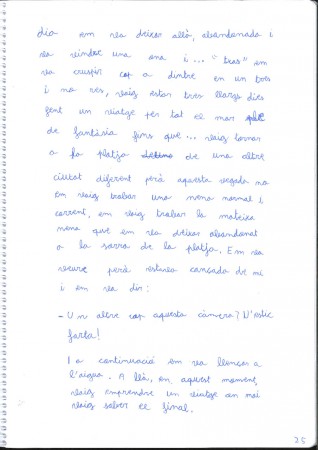 dia em va deixar allò, abandonada i
va vindre una ona i... "tras" em
va cruspir cap a dintre en un tres
i no res, vaig estar tres llargs dies
fent un viatge per tot el mar ple
de fantasia fins que... vaig tornar
a la platja de una altre
ciutat diferent però aquesta vegada no
em vaig trobar una nena normal i
corrent, em vaig trobar la mateixa
nena que em va deixar abandonat
a la sorra de la platja. Em va
veure però estava cansada de mi
i em va dir:
- Un altre cop aquesta càmera? N'estic
farta!
I a continuació em va llençar a
l'aigua. A llà, en aquest moment,
vaig emprendre un viatge on mai
vaig saber el final.
25